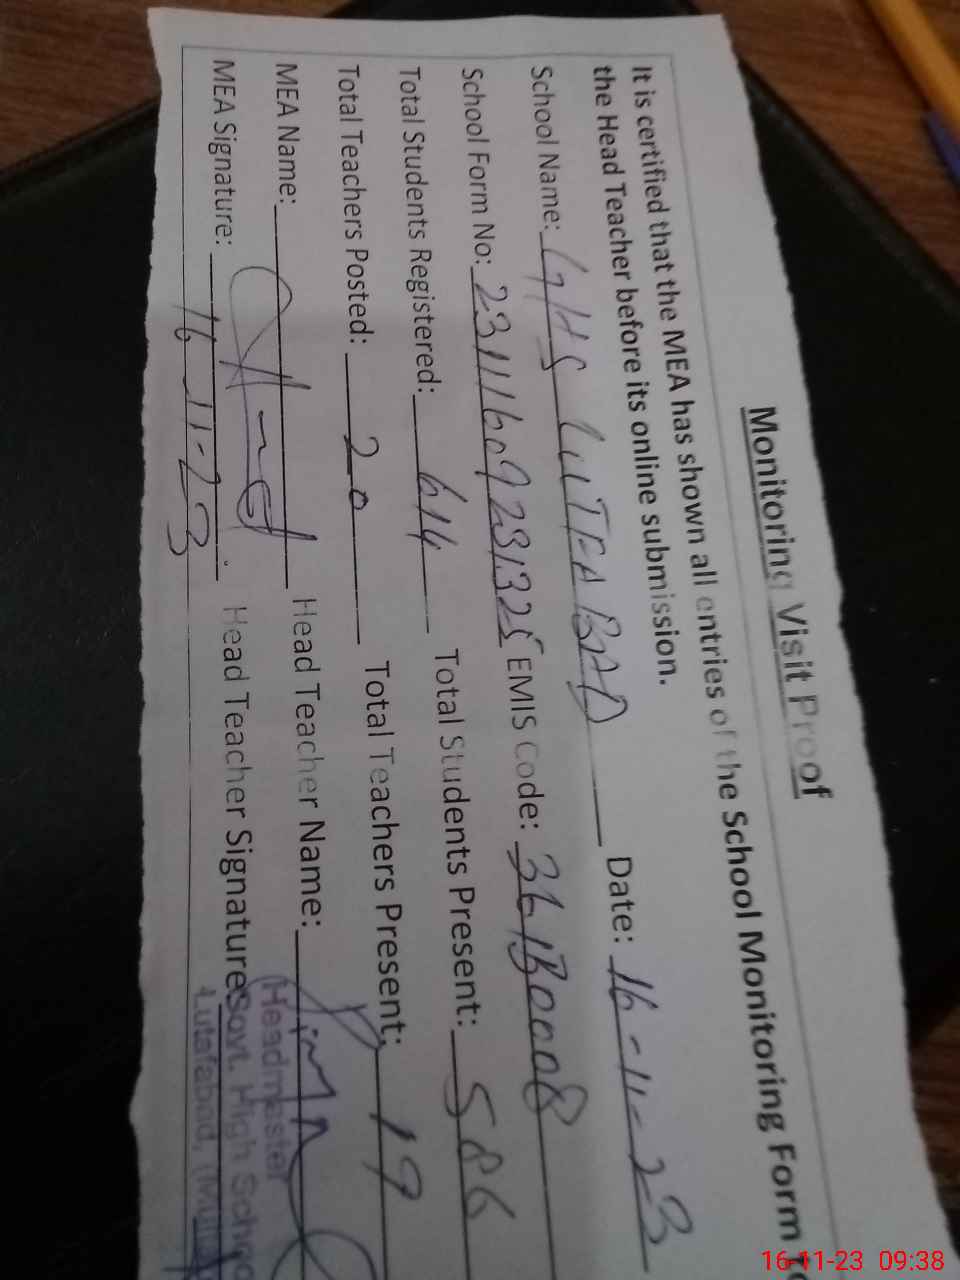 Monitoring Visit Proof
It is certified that the MEA has shown all entries of the School Monitoring Form to
the Head Teacher before its online submission.
School Name: GHS LUTFABAD Date: 16-11-23
School Form No: EMIS Code: 361B0008
Total Students Registered: 614 Total Students Present: 586
Total Teachers Posted: 20 Total Teachers Present: 19
MEA Name: Head Teacher Name:
MEA Signature: 16-11-23 Head Teacher Signature
Headmaster
Govt. High School
Lutafabad,
16-11-23 09:38